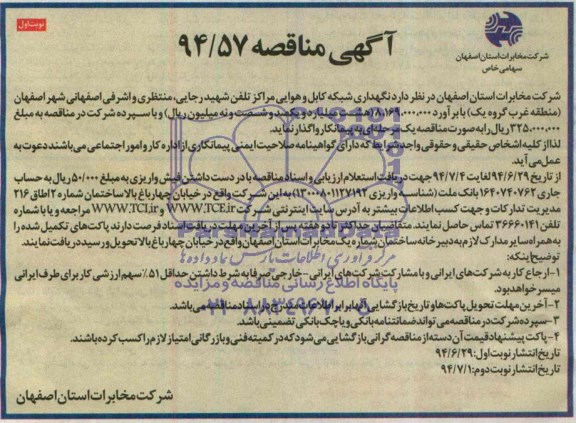 نوبت اول
آگهی مناقصه ۹۴/۵۷
شرکت مخابرات استان اصفهان
سهامی خاص
شرکت مخابرات استان اصفهان در نظر دارد نگهداری شبکه کابل و هوایی مراکز تلفن شهید رجایی، منتظری و اشرفی اصفهانی شهر اصفهان
(منطقه غرب گروه یک) با برآورد ۸،۱۶۹،۰۰۰،۰۰۰ (هشت میلیارد و یکصد و شصت و نه میلیون ریال) و با سپرده شرکت در مناقصه به مبلغ
۳۲۵،۰۰۰،۰۰۰ ریال را به صورت مناقصه یک مرحله‌ای به پیمانکار واگذار نماید.
لذا از کلیه اشخاص حقیقی و حقوقی واجد شرایط که دارای گواهینامه صلاحیت ایمنی پیمانکاری از اداره کار و امور اجتماعی می‌باشند دعوت به
عمل می‌آید.
از تاریخ ۹۴/۶/۲۹ لغایت ۹۴/۷/۴ جهت دریافت استعلام ارزیابی و اسناد مناقصه با در دست داشتن فیش واریزی به مبلغ ۵۰/۰۰۰ ریال به حساب
جاری ۱۶۴۰۷۴۰۷۶۲ بانک ملت (شناسه واریزی ۱۳۰۰۰۸۰۱۱۲۷۱۹۲) به این شرکت واقع در خیابان چهارباغ بالا ساختمان شماره ۲ اطاق ۲۱۶
مدیریت تدارکات و جهت کسب اطلاعات بیشتر به آدرس سایت اینترنتی شرکت WWW.TCE.ir و WWW.TCI.ir مراجعه و یا با شماره
تلفن ۳۶۶۶۰۱۴۱ تماس حاصل نمایند. متقاضیان حداکثر تا دو هفته پس از آخرین مهلت دریافت اسناد فرصت دارند پاکت‌های تکمیل شده را
به همراه سایر مدارک لازم به دبیرخانه ساختمان شماره یک مخابرات استان اصفهان واقع در خیابان چهارباغ بالا تحویل و رسید دریافت نمایند.
توضیح اینکه:
۱- ارجاع کار به شرکت‌های ایرانی و با مشارکت شرکت‌های ایرانی - خارجی صرفا به شرط داشتن حداقل ۵۱٪ سهم ارزشی کار برای طرف ایرانی
میسر خواهد بود.
۲- آخرین مهلت تحویل پاکت‌ها و تاریخ بازگشایی آن‌ها برابر اطلاعات مندرج در اسناد مناقصه می‌باشد.
۳- سپرده شرکت در مناقصه می‌تواند ضمانتنامه بانکی و یا چک بانکی تضمینی باشد.
۴- پاکت پیشنهاد قیمت آن دسته از مناقصه‌گرانی بازگشایی می‌شود که در کمیته فنی و بازرگانی امتیاز لازم را کسب کرده باشند.
تاریخ انتشار نوبت اول: ۹۴/۶/۲۹
تاریخ انتشار نوبت دوم: ۹۴/۷/۱
شرکت مخابرات استان اصفهان
مرکز فرآوری اطلاعات پارس نماد داده‌ها
پایگاه اطلاع رسانی مناقصه و مزایده
۰۲۱-۸۸۳۴۹۶۷۰-۵